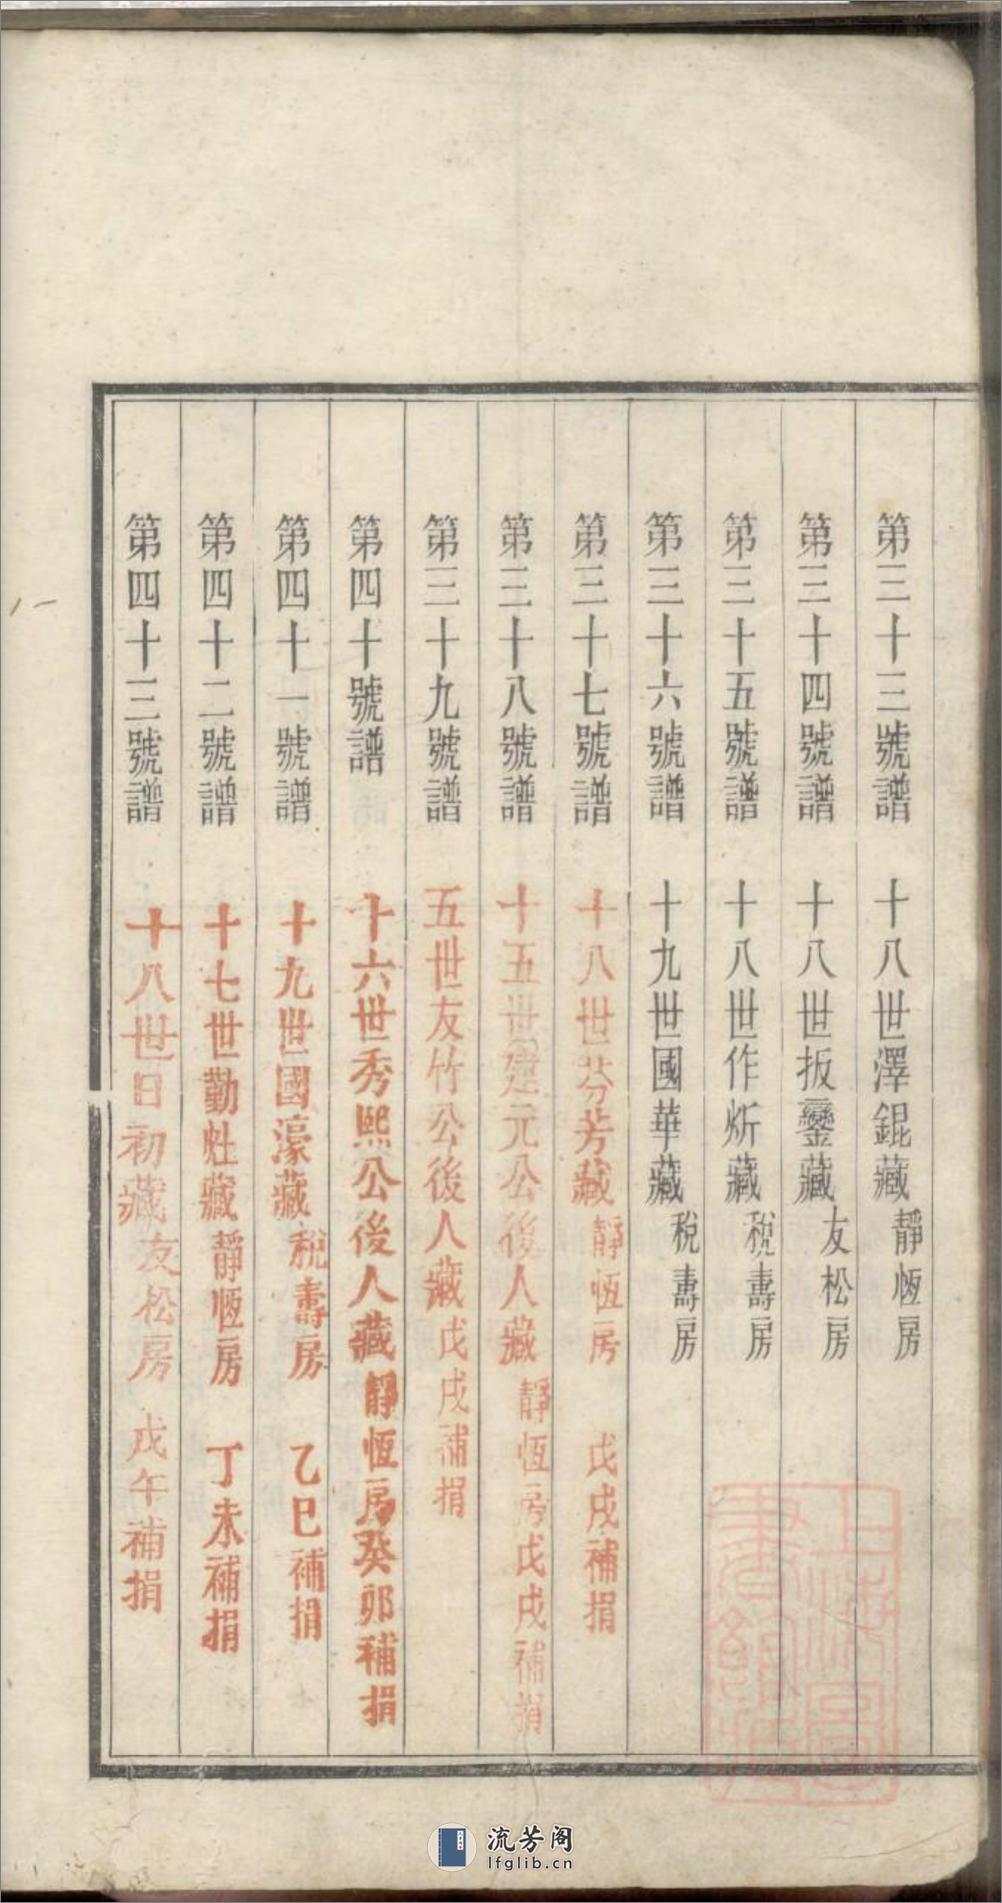 第三十三號譜 十八世澤錕藏 靜恆房
第三十四號譜 十八世扳鑾藏 友松房
第三十五號譜 十八世作炘藏 稅壽房
第三十六號譜 十九世國華藏 稅壽房
第三十七號譜 十八世芬芳藏 靜恆房 戊戌補捐
第三十八號譜 十五世建元公後人藏 靜恆房戊戌補捐
第三十九號譜 五世友竹公後人藏 戊戌補捐
第四十號譜 十六世秀熙公後人藏 靜恆房癸卯補捐
第四十一號譜 十九世國濠藏 稅壽房 乙巳補捐
第四十二號譜 十七世勤灶藏 靜恆房 丁未補捐
第四十三號譜 十八世日初藏 友松房 戊午補捐
流芳阁
lfglib.cn